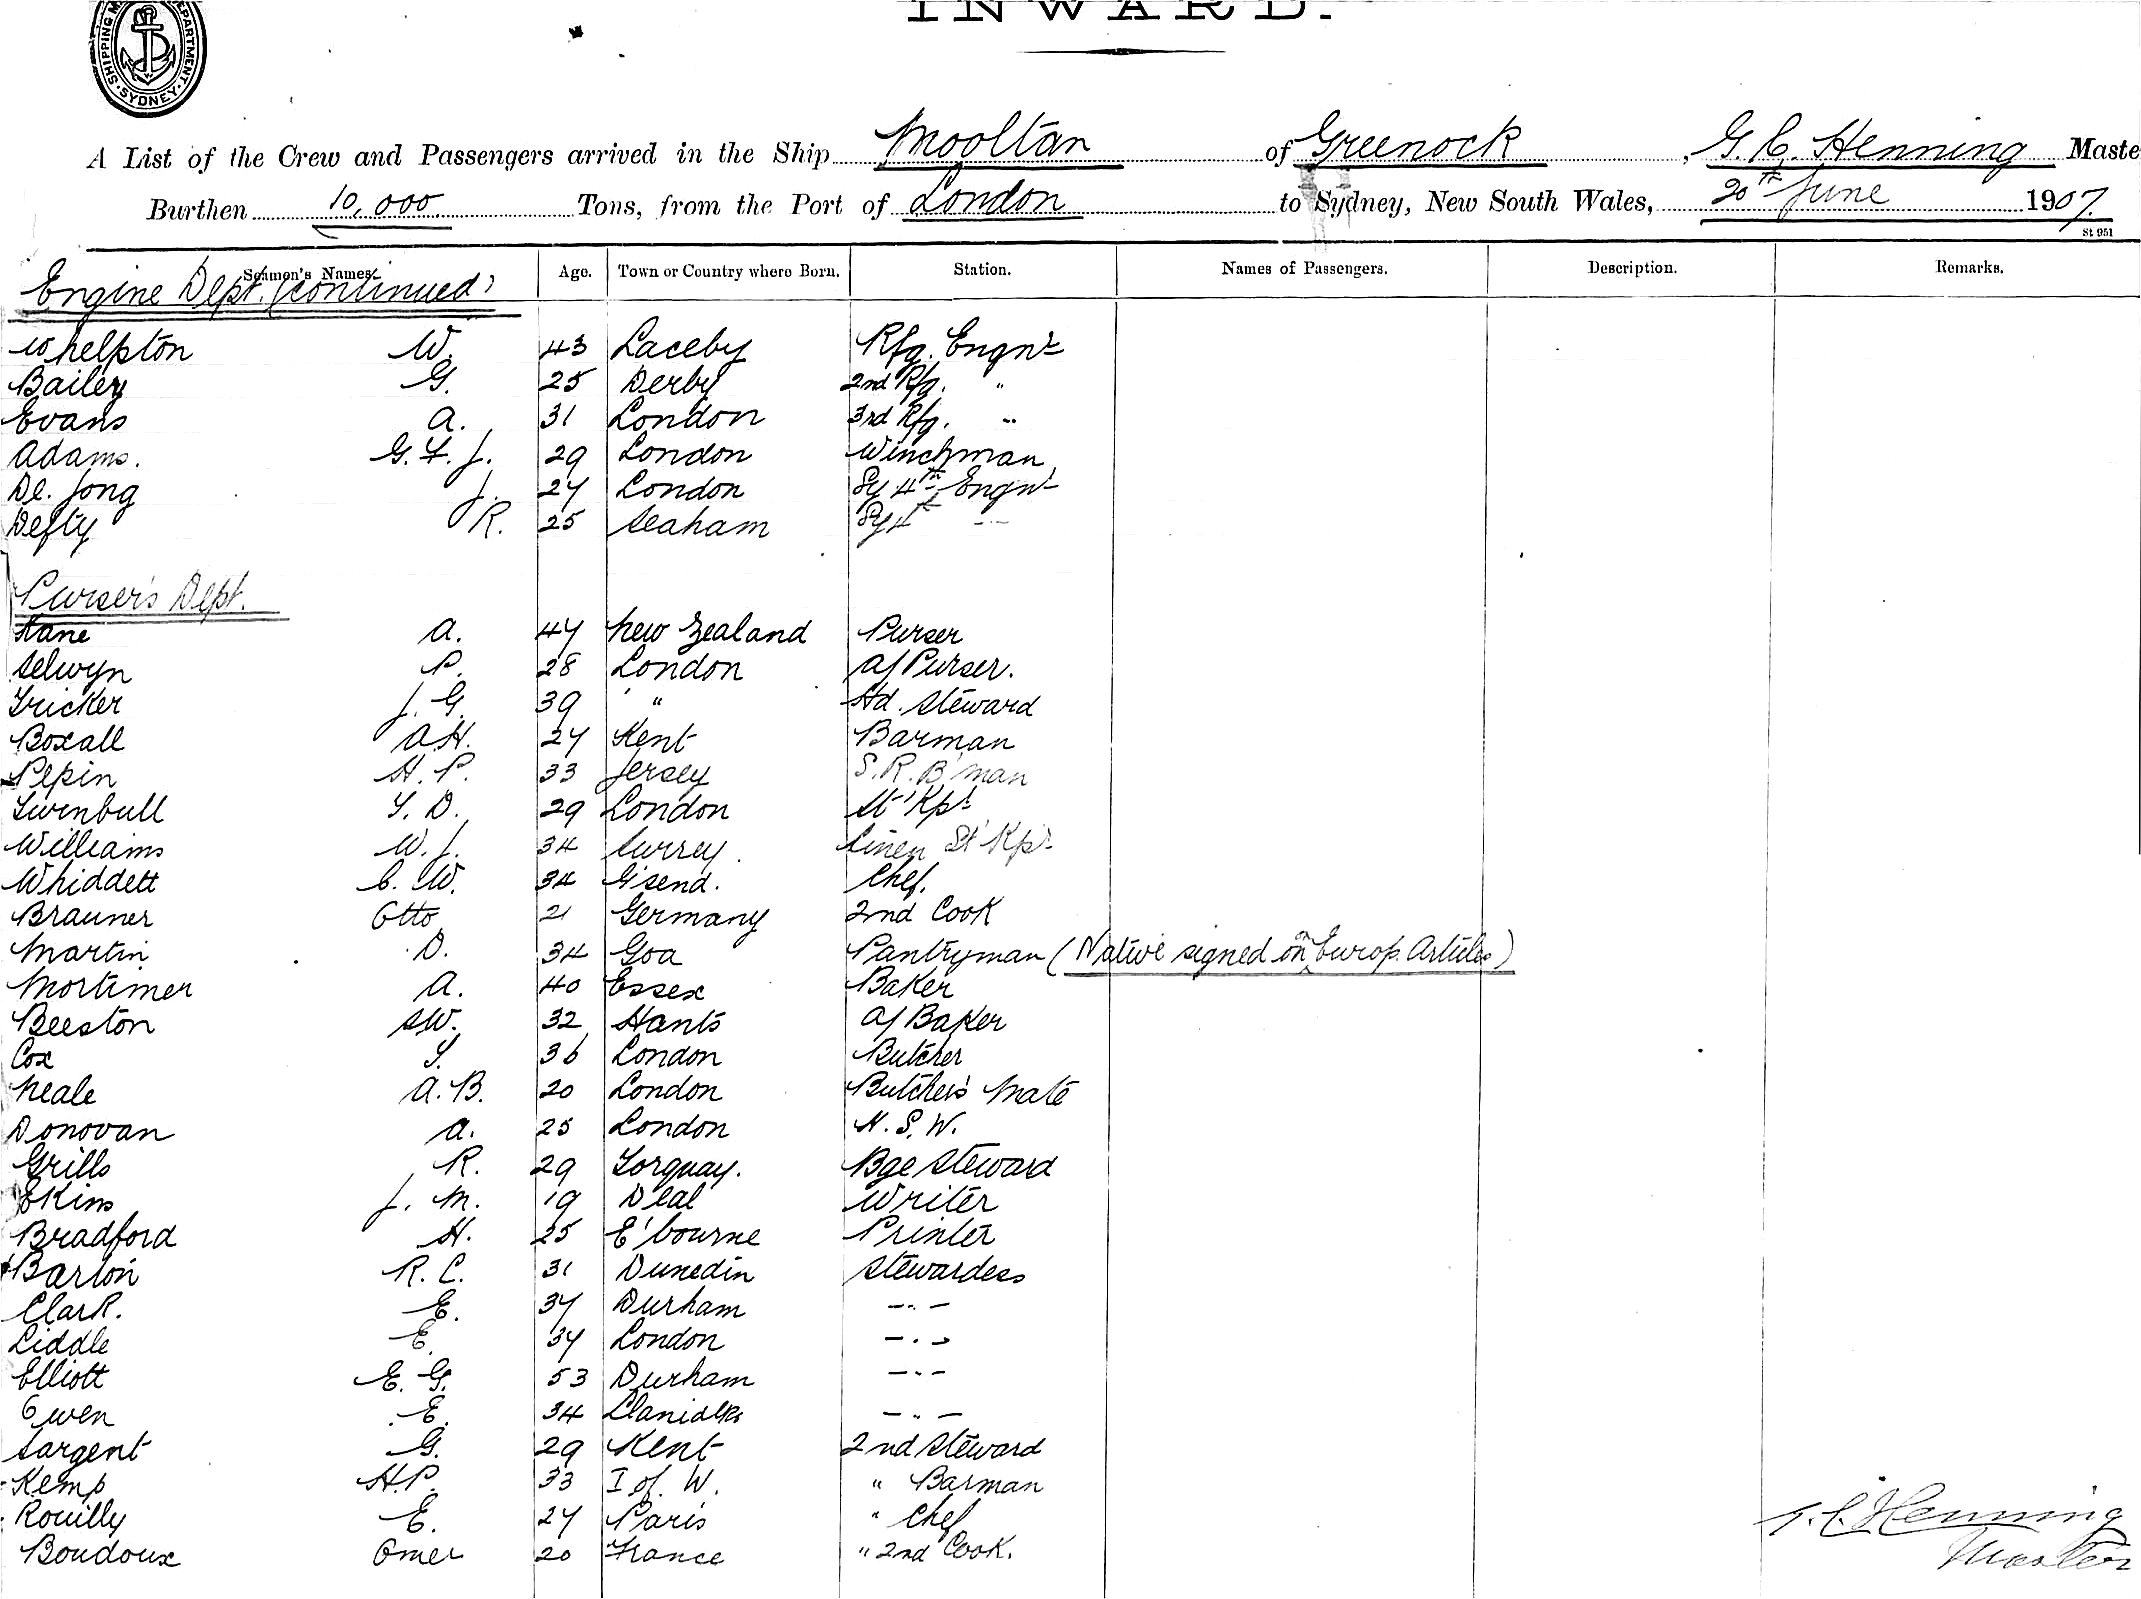 INWARD.
SHIPPING DEPARTMENT SYDNEY
A List of the Crew and Passengers arrived in the Ship Mooltan of Greenock, G. C. Henning Maste
Burthen 10,000 Tons, from the Port of London to Sydney, New South Wales, 20th June 1907.
St 951
Seamen's Names. Age. Town or Country where Born. Station. Names of Passengers. Description. Remarks.
Engine Dept. (continued)
Whelpton W. 43 Laceby Rfg. Engnr
Bailey G. 25 Derby 2nd Rfg. "
Evans A. 31 London 3rd Rfg. "
Adams. G. F. J. 29 London Winchman
De. Jong J. 27 London Sy 4th Engnr
Defty R. 25 Seaham Sy 4th -..-
Purser's Dept.
Kane A. 47 New Zealand Purser
Selwyn P. 28 London a/ Purser.
Tricker J. G. 39 " Hd. Steward
Boxall A.H. 27 Kent Barman
Pepin H. P. 33 Jersey S. R. B'man
Turnbull T. D. 29 London St' Kpr
Williams W. J. 34 Surrey. Linen St' Kpr
Whiddett C. W. 34 G'send. Chef.
Brauner Otto 21 Germany 2nd Cook
Martin D. 34 Goa Pantryman (Native signed on Europ. Articles)
Mortimer A. 40 Essex Baker
Beeston S.W. 32 Hants a/ Baker
Cox T. 36 London Butcher
Neale A. B. 20 London Butcher's Mate
Donovan A. 25 London K. S. W.
Grills R. 29 Torquay. Bge Steward
Ekins J. M. 19 Deal Writer
Bradford H. 25 E'bourne Printer
Barton R. C. 31 Dunedin Stewardess
Clark. E. 37 Durham -..-
Liddle E. 37 London -..-
Elliott E. G. 53 Durham -..-
Owen E. 34 Llanidlos -..-
Sargent G. 29 Kent 2nd Steward
Kemp H.P. 33 I of. W. " Barman
Rouilly E. 27 Paris " Chef
Boudoux Omer 20 France " 2nd Cook.
G. C. Henning
Master